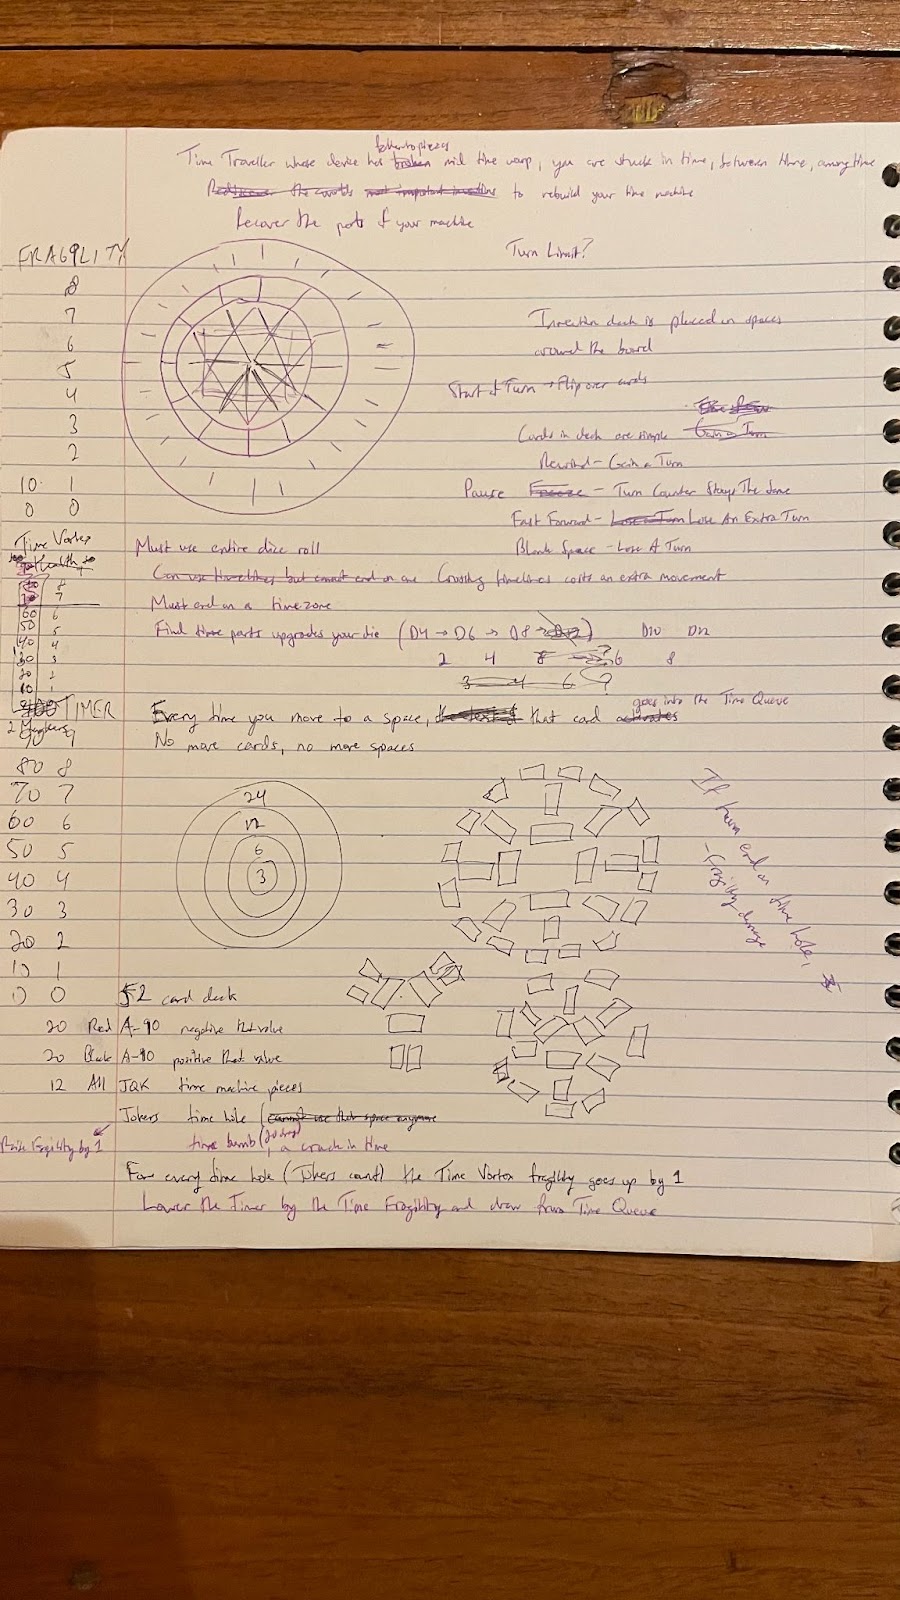 fallen to pieces
Time Traveller whose device has broken mid time warp, you are stuck in time, between time, among time
Rediscover the world's most important inventions to rebuild your time machine
Recover the parts of your machine
FRAGILITY
8
7
6
5
4
3
2
10 1
0 0
Turn Limit?
Invention deck is placed in spaces
around the board
Start of Turn → Flip over cards
Cards in deck are simple Gain a Turn
Rewind - Gain a Turn
Pause Freeze - Turn Counter Stays The Same
Fast Forward - Lose a Turn Lose An Extra Turn
Blank Space - Lose A Turn
Time Vortex
Health
80 8
70 7
60 6
50 5
40 4
30 3
20 2
10 1
Must use entire dice roll
Can use timelines but cannot end on one. Crossing timelines costs an extra movement
Must end on a timezone
Find three parts upgrades your die (D4 → D6 → D8 → D12) D10 D12
2 4 8 6 8
3 4 6 ?
TIMER
2 Markers
9
80 8
70 7
60 6
50 5
40 4
30 3
20 2
10 1
0 0
goes into the Time Queue
Every time you move to a space, that card activates
No more cards, no more spaces
24
12
6
3
If turn end on time hole,
- Fragility damage
52 card deck
20 Red A-10 negative that value
20 Black A-10 positive that value
12 All JQK time machine pieces
Jokers time hole (cannot use that space anymore
Raise Fragility by 1
time bomb ( , a crack in time
For every time hole (Jokers count) the Time Vortex fragility goes up by 1
Lower the Timer by the Time Fragility and draw from Time Queue